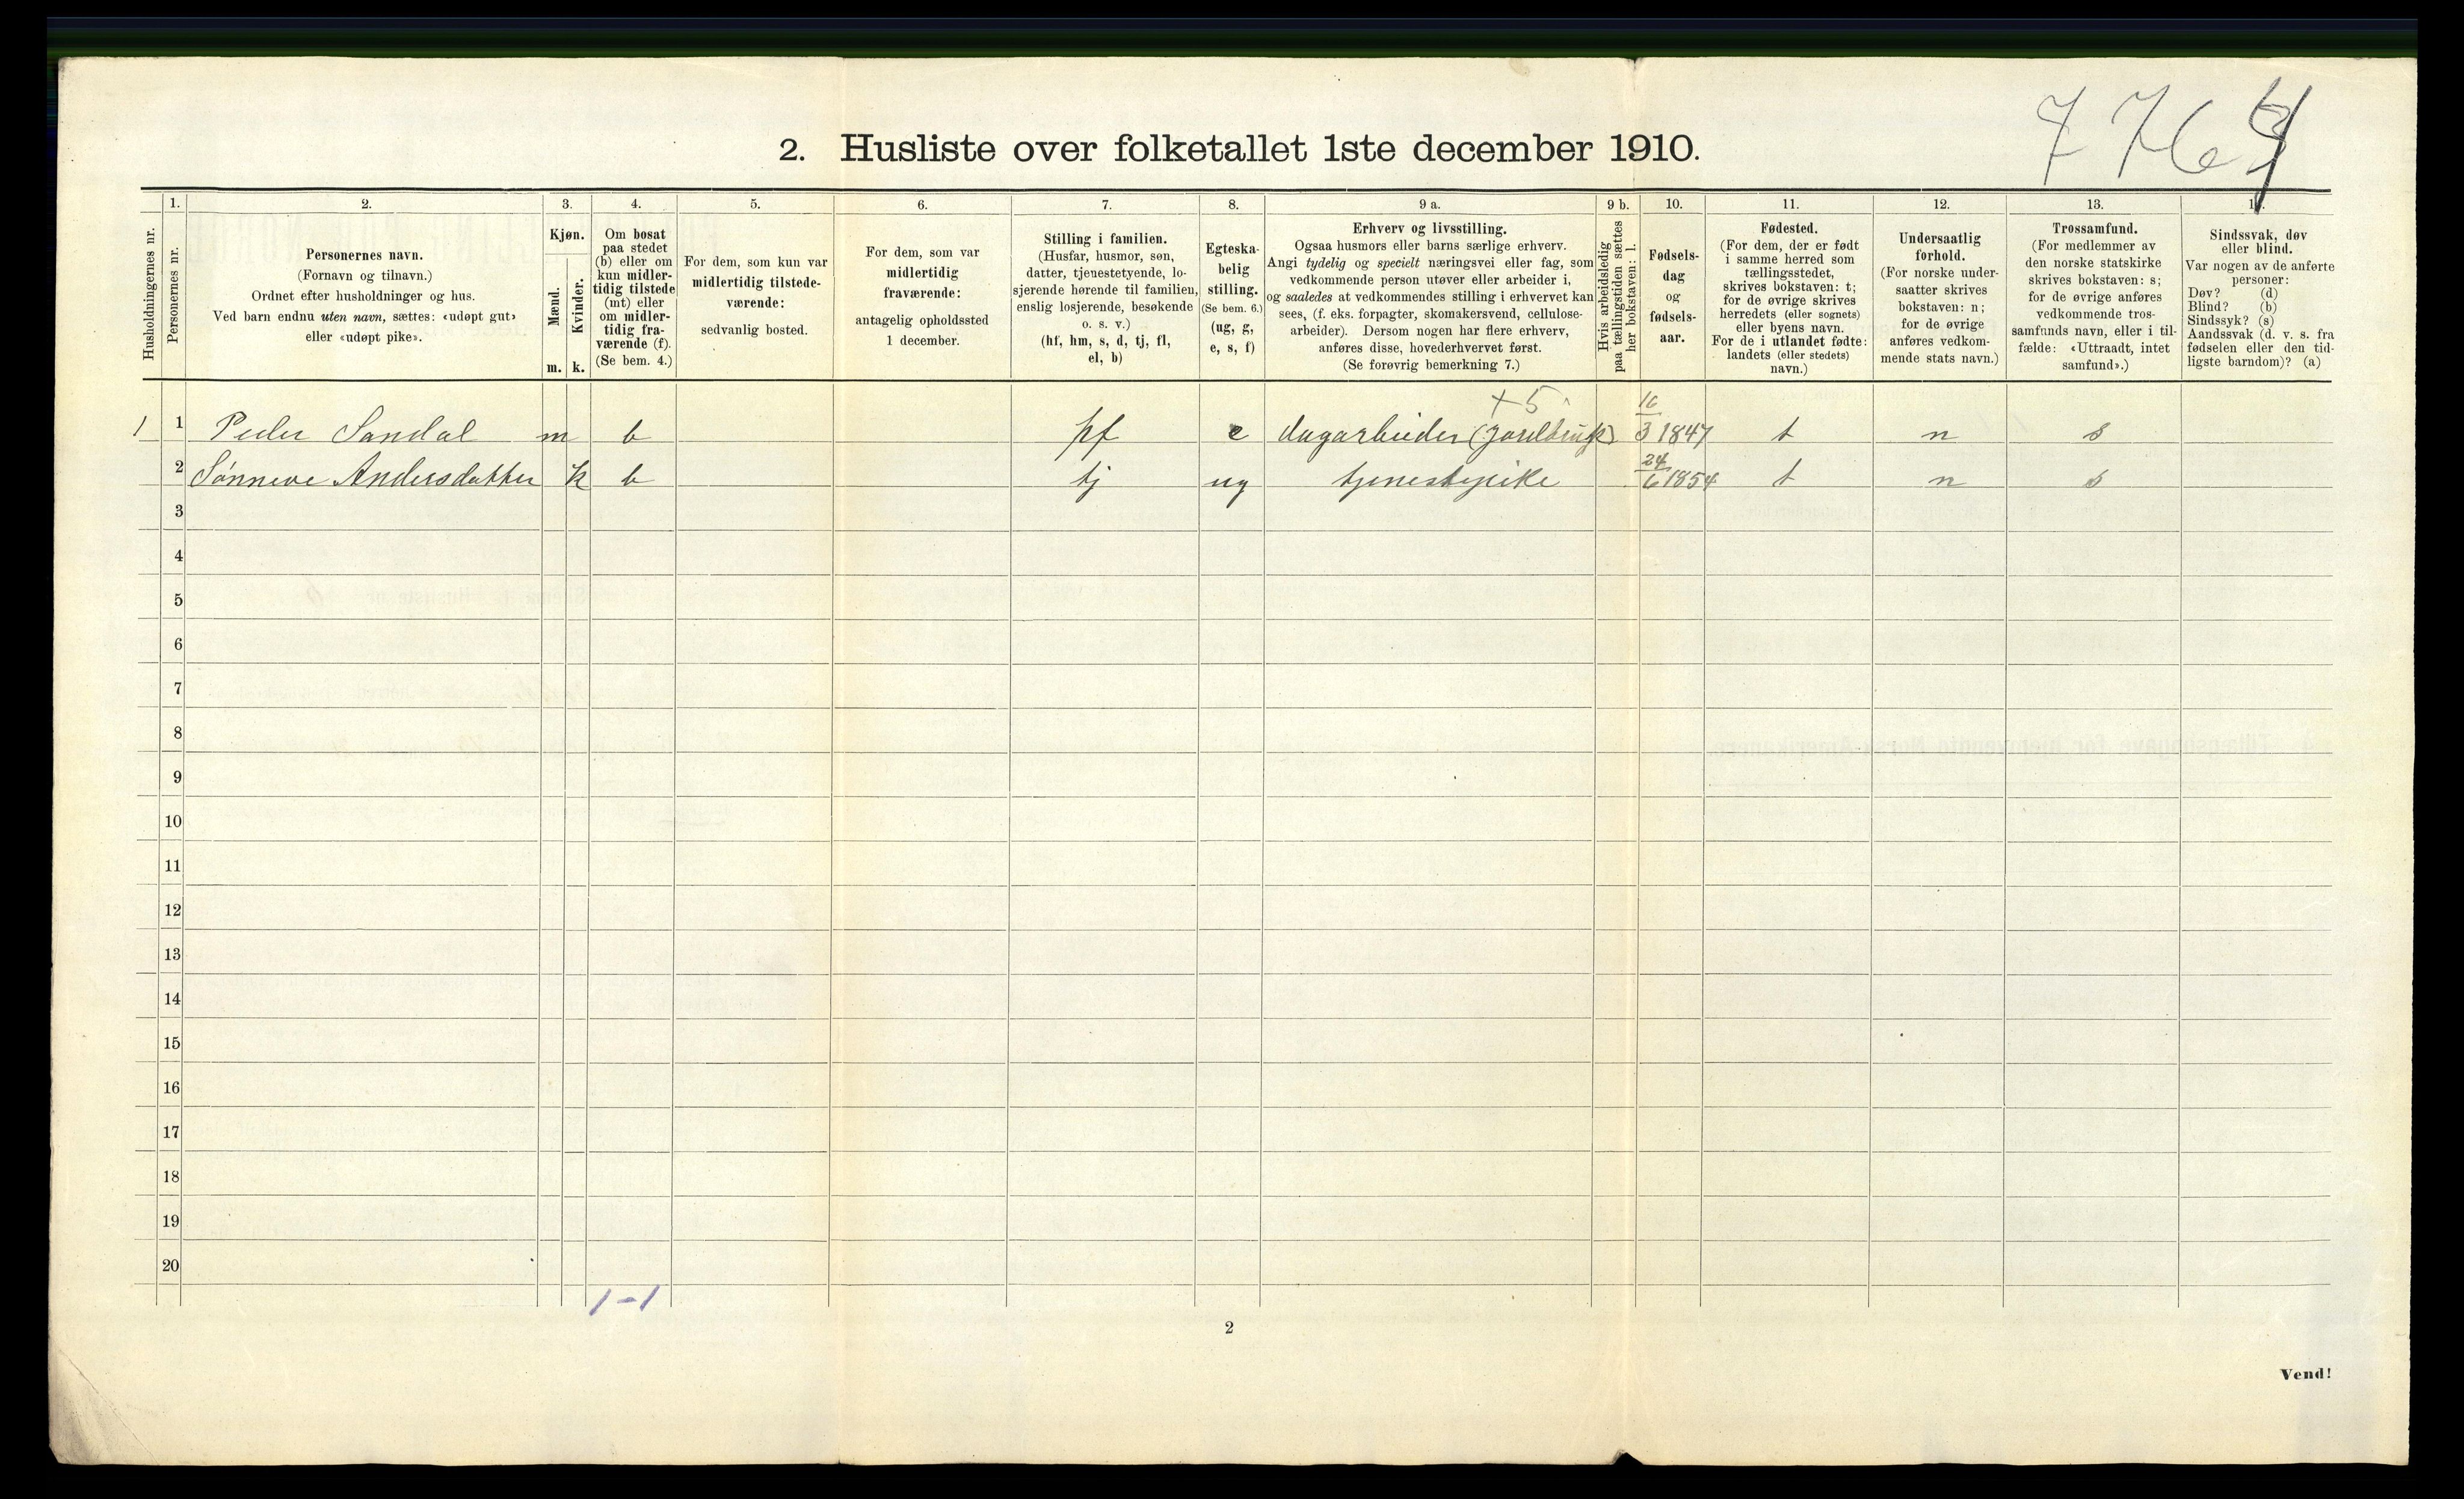 2. Husliste over folketallet 1ste december 1910.
776
Husholdningernes nr.
1.
Personernes nr.
2.
Personernes navn.
(Fornavn og tilnavn.)
Ordnet efter husholdninger og hus.
Ved barn endnu uten navn, sættes: «udøpt gut»
eller «udøpt pike».
3.
Kjøn.
Mænd.
Kvinder.
m. k.
4.
Om bosat
paa stedet
(b) eller om
kun midler-
tidig tilstede
(mt) eller
om midler-
tidig fra-
værende (f).
(Se bem. 4.)
5.
For dem, som kun var
midlertidig tilstede-
værende:
sedvanlig bosted.
6.
For dem, som var
midlertidig
fraværende:
antagelig opholdssted
1 december.
7.
Stilling i familien.
(Husfar, husmor, søn,
datter, tjenestetyende, lo-
sjerende hørende til familien,
enslig losjerende, besøkende
o. s. v.)
(hf, hm, s, d, tj, fl,
el, b)
8.
Egteska-
belig
stilling.
(Se bem. 6.)
(ug, g,
e, s, f)
9 a.
Erhverv og livsstilling.
Ogsaa husmors eller barns særlige erhverv.
Angi tydelig og specielt næringsvei eller fag, som
vedkommende person utøver eller arbeider i,
og saaledes at vedkommendes stilling i erhvervet kan
sees, (f. eks. forpagter, skomakersvend, cellulose-
arbeider). Dersom nogen har flere erhverv,
anføres disse, hovederhvervet først.
(Se forøvrig bemerkning 7.)
9 b.
Hvis arbeidsledig
paa tællingstiden sættes
her bokstaven: l.
10.
Fødsels-
dag
og
fødsels-
aar.
11.
Fødested.
(For dem, der er født
i samme herred som
tællingsstedet,
skrives bokstaven: t;
for de øvrige skrives
herredets (eller sognets)
eller byens navn.
For de i utlandet fødte:
landets (eller stedets)
navn.)
12.
Undersaatlig
forhold.
(For norske under-
saatter skrives
bokstaven: n;
for de øvrige
anføres vedkom-
mende stats navn.)
13.
Trossamfund.
(For medlemmer av
den norske statskirke
skrives bokstaven: s;
for de øvrige anføres
vedkommende tros-
samfunds navn, eller i til-
fælde: «Uttraadt, intet
samfund».)
Sindssvak, døv
eller blind.
Var nogen av de anførte
personer:
Døv? (d)
Blind? (b)
Sindssyk? (s)
Aandssvak (d. v. s. fra
fødselen eller den tid-
ligste barndom)? (a)
+5
1 1 Peder Sandal m b hf e dagarbeider (jordbruk) 16/3 1847 t n s
2 Sønneve Andersdatter k b tj ug tjenestepike 24/6 1854 t n s
3
4
5
6
7
8
9
10
11
12
13
14
15
16
17
18
19
20
1-1
2
Vend!